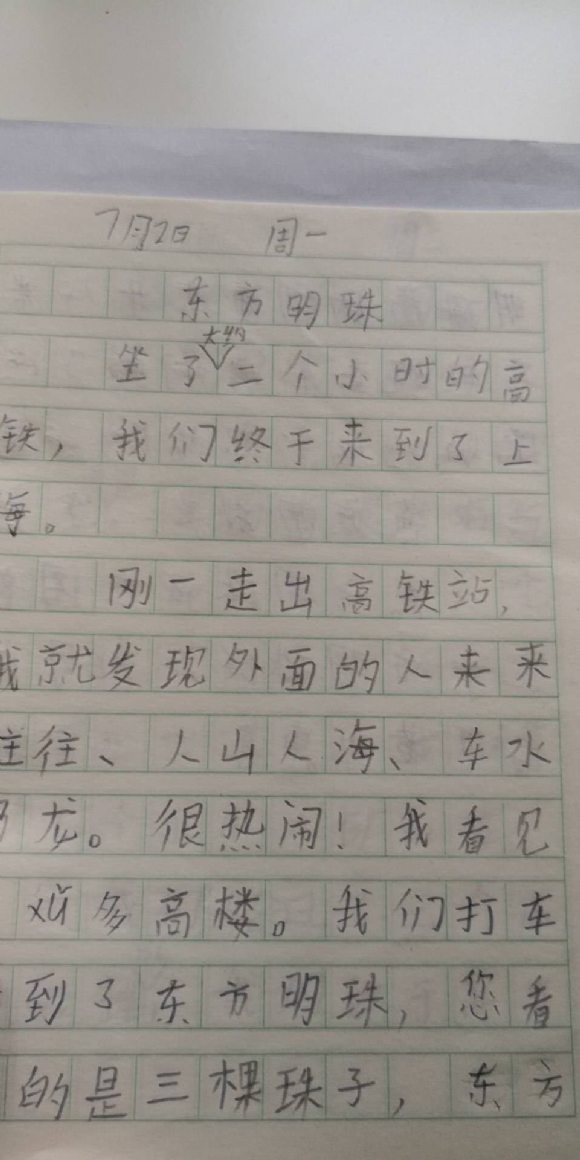 7月2日 周一
东方明珠
大约
坐了三个小时的高
铁，我们终于来到了上
海。
刚一走出高铁站，
我就发现外面的人来来
往往、人山人海、车水
龙。很热闹！我看见
xǔ多高楼。我们打车
到了东方明珠，您看
的是三棵珠子，东方